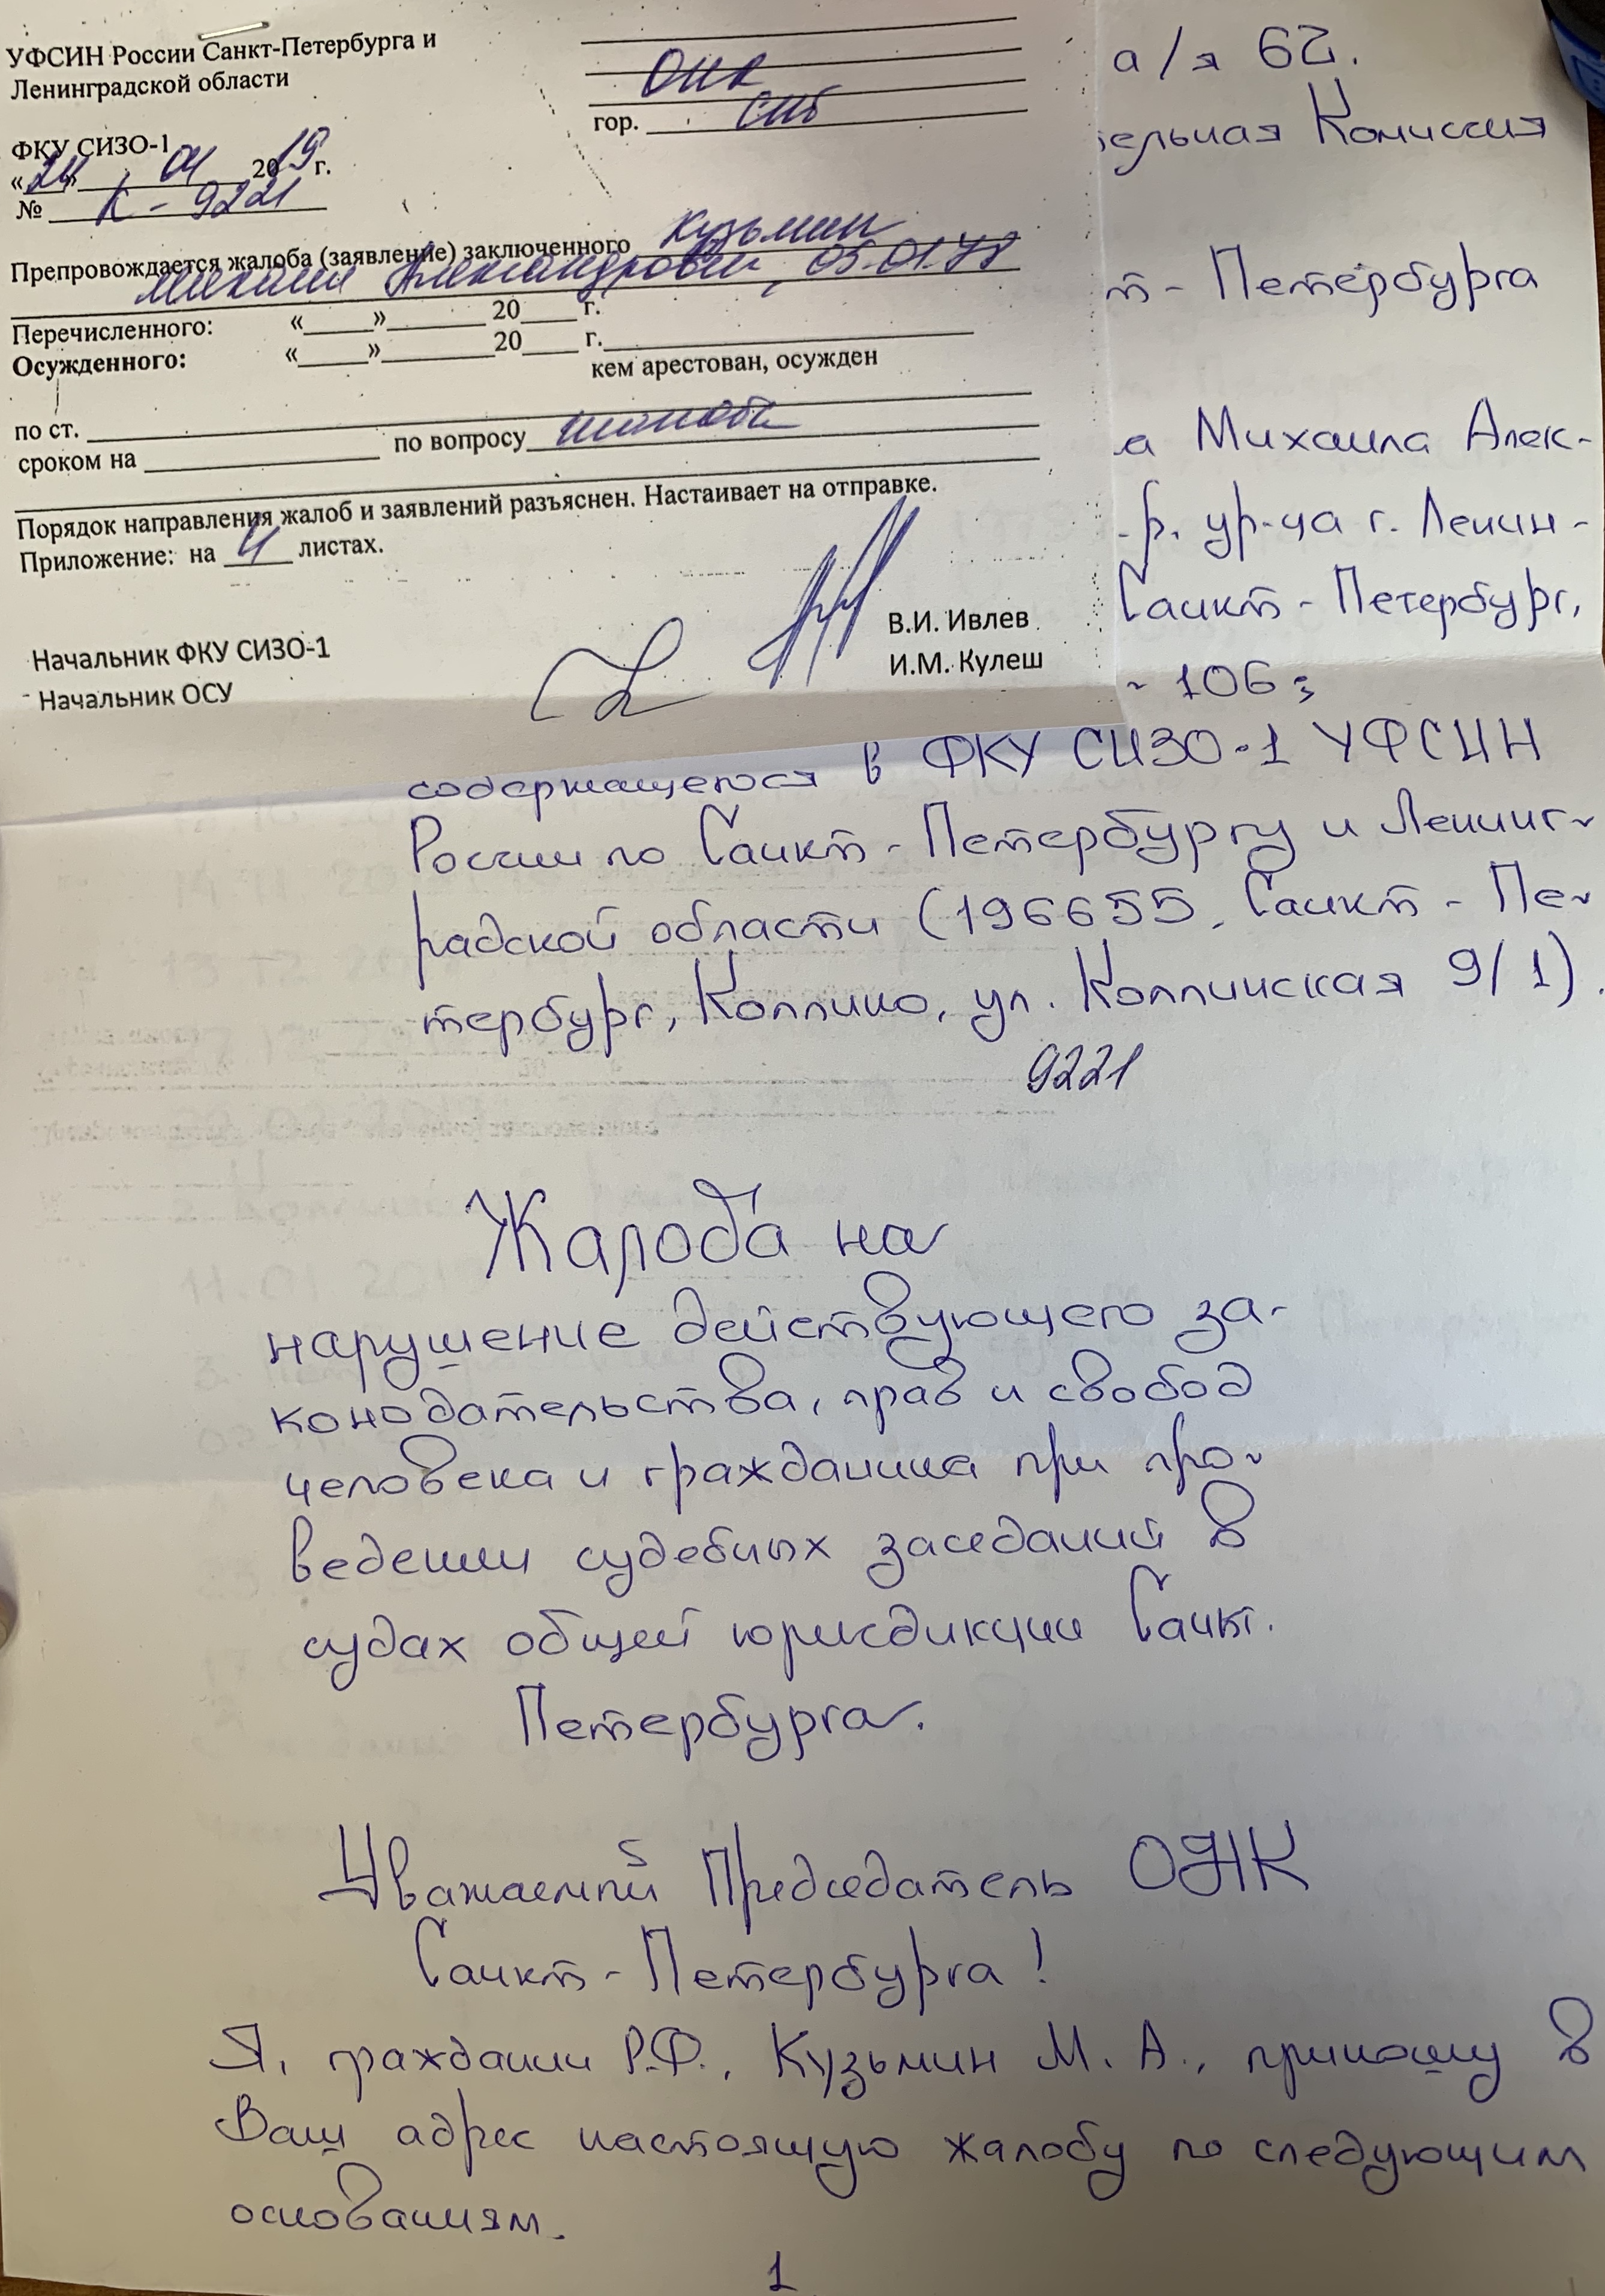 УФСИН России Санкт-Петербурга и
Ленинградской области
ФКУ СИЗО-1
«24» 04 2019 г.
№ К-9221
ОНК
гор. СПб
Препровождается жалоба (заявление) заключенного Кузьмин
Михаил Александрович, 05.01.78
Перечисленного: « » 20 г.
Осужденного: « » 20 г.
кем арестован, осужден
по ст.
сроком на по вопросу жалоба
Порядок направления жалоб и заявлений разъяснен. Настаивает на отправке.
Приложение: на 4 листах.
Начальник ФКУ СИЗО-1 В.И. Ивлев
Начальник ОСУ И.М. Кулеш
а/я 62.
ельная Комиссия
т-Петербурга
а Михаила Алек-
.р. ур-ца г. Ленин-
Санкт-Петербург,
- 106;
содержащегося в ФКУ СИЗО-1 УФСИН
России по Санкт-Петербургу и Ленинг-
радской области (196655, Санкт-Пе-
тербург, Колпино, ул. Колпинская 9/1).
9221
Жалоба на
нарушение действующего за-
конодательства, прав и свобод
человека и гражданина при про-
ведении судебных заседаний в
судах общей юрисдикции Санкт-
Петербурга.
Уважаемый Председатель ОНК
Санкт-Петербурга!
Я, гражданин Р.Ф., Кузьмин М. А., приношу в
Ваш адрес настоящую жалобу по следующим
основаниям.
1